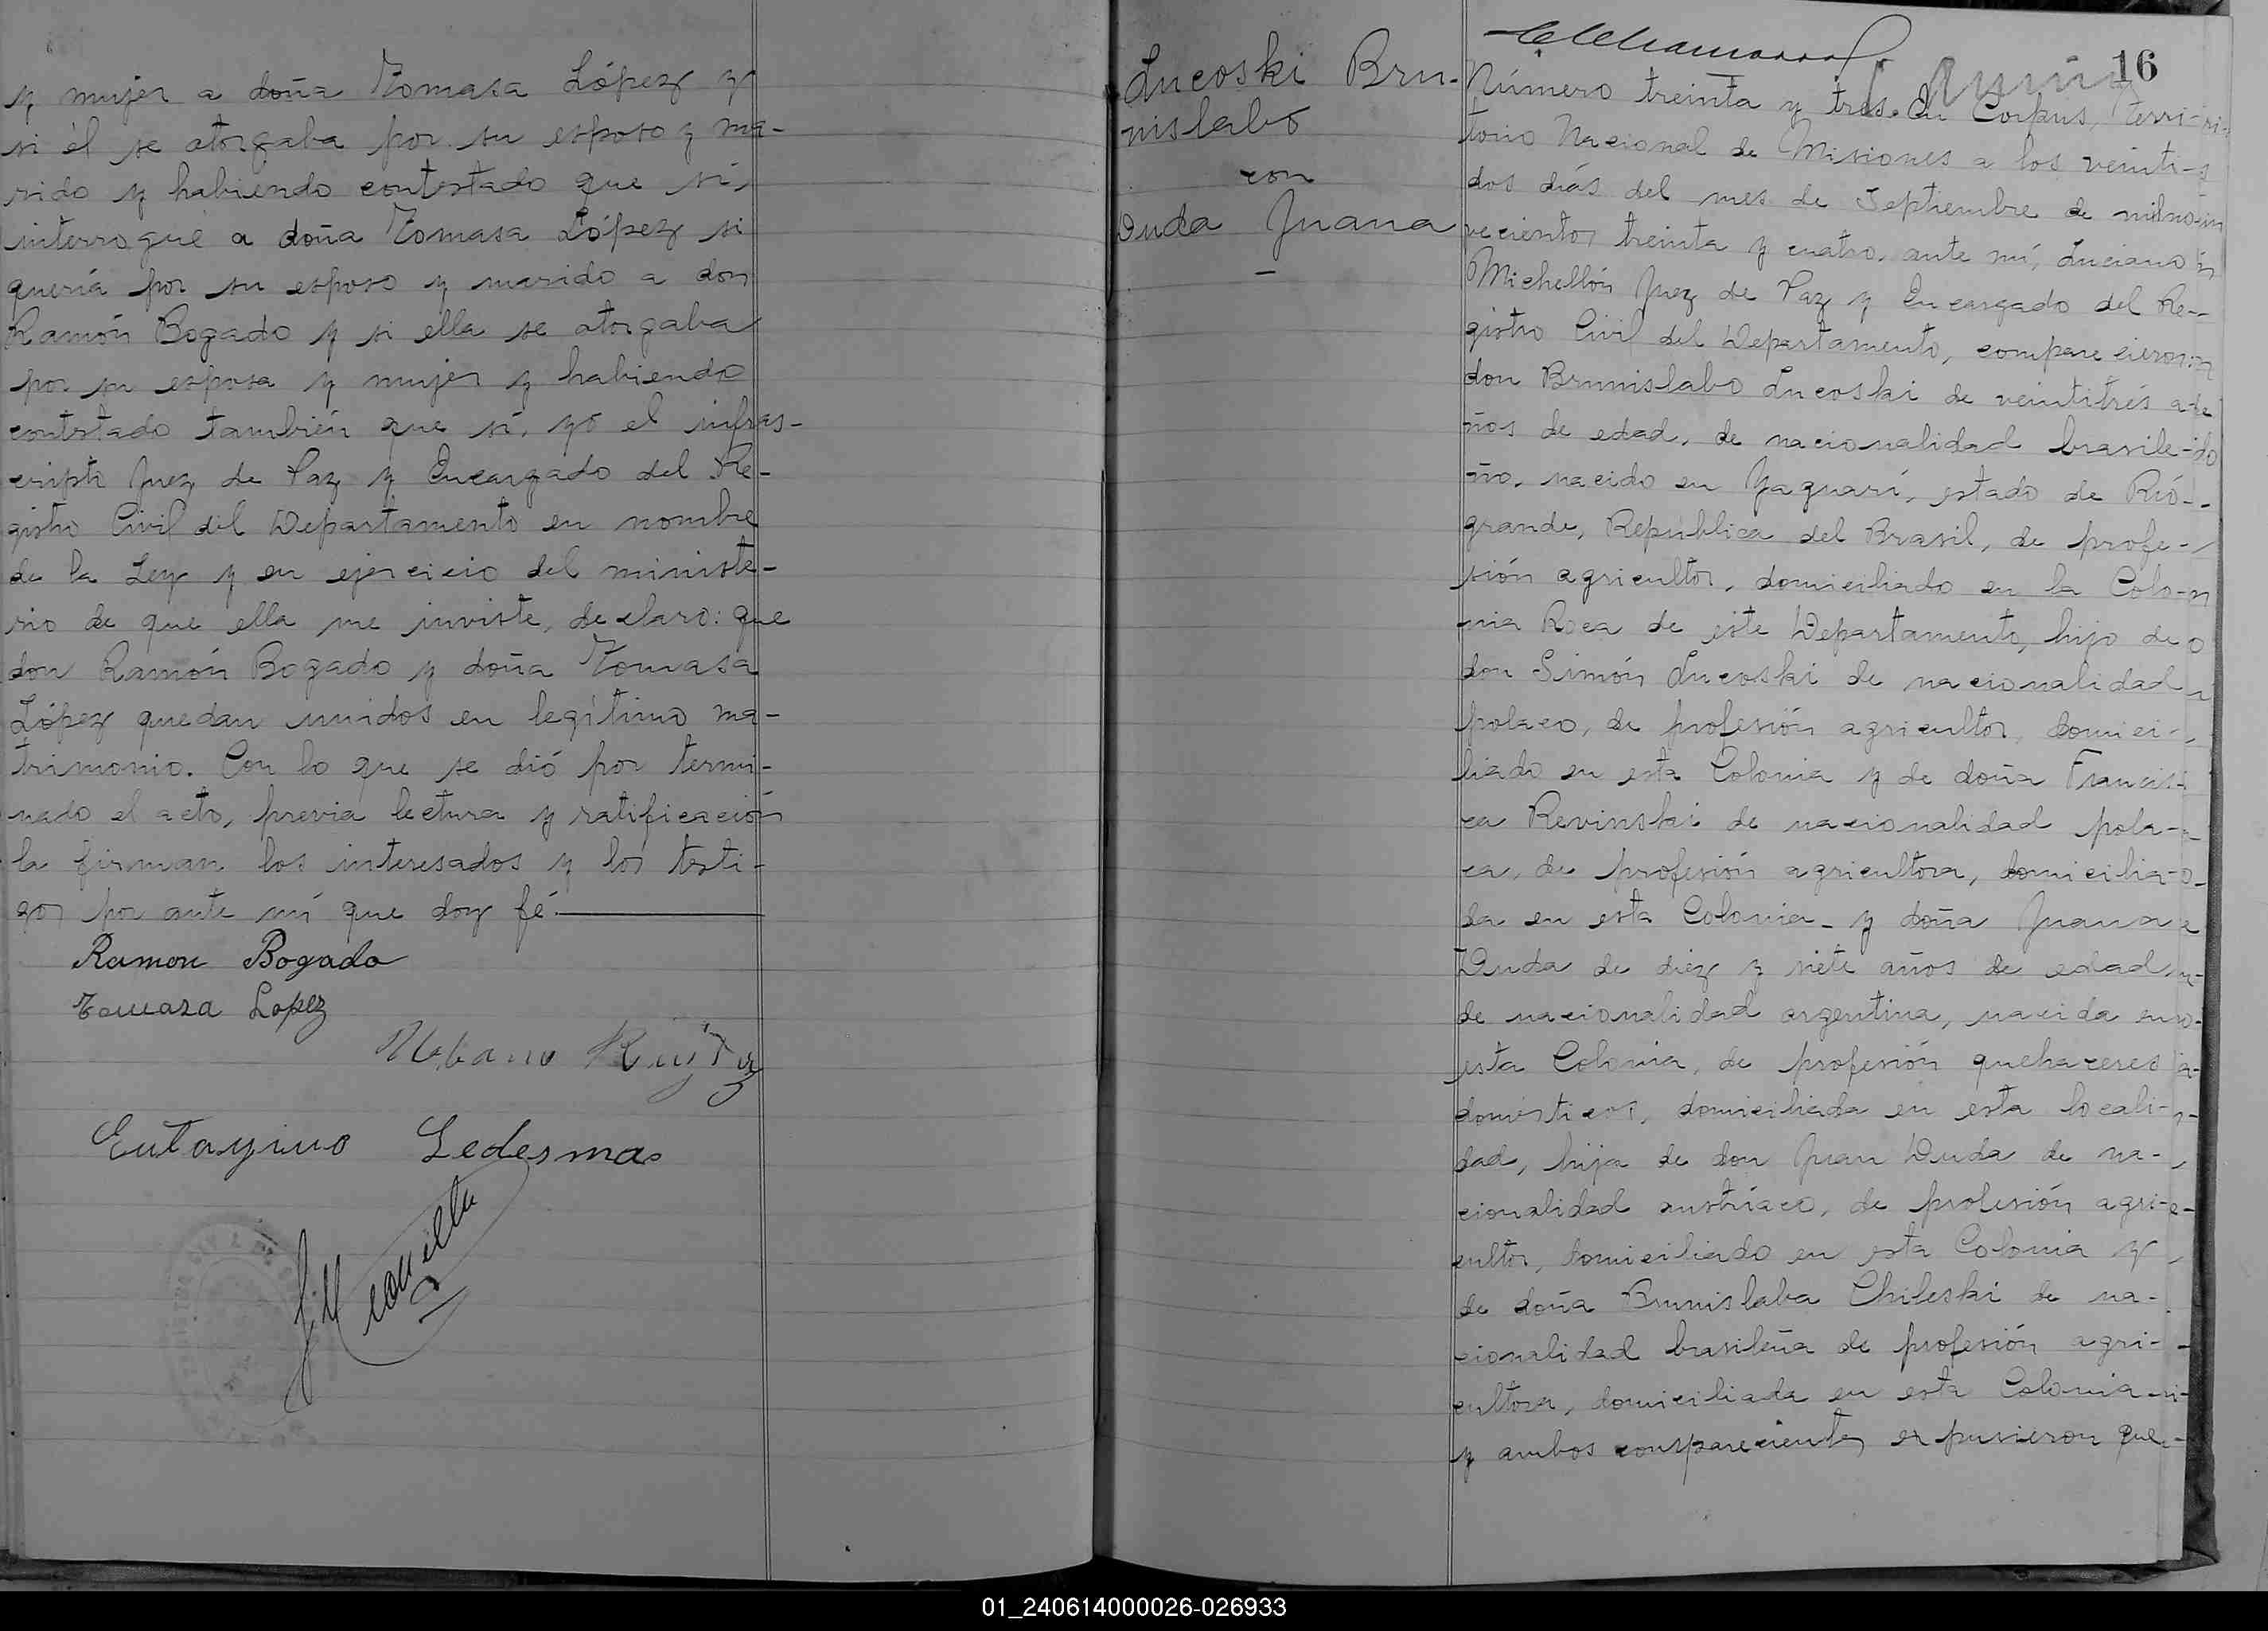 y mujer a doña Tomasa López y
si él se otorgaba por su esposo y ma-
rido y habiendo contestado que sí,
interrogué a doña Tomasa López si
quería por su esposo y marido a don
Ramón Bogado y si ella se otorgaba
por su esposa y mujer y habiendo
contestado también que sí, yo el infras-
cripto Juez de Paz y Encargado del Re-
gistro Civil del Departamento en nombre
de la Ley y en ejercicio del ministe-
rio de que ella me inviste, declaro: que
don Ramón Bogado y doña Tomasa
López quedan unidos en legítimo ma-
trimonio. Con lo que se dió por termi-
nado el acto, previa lectura y ratificación
la firman los interesados y los testi-
gos por ante mí que doy fé.
Ramon Bogado
Tomasa Lopez
Eutayino Ledesma
Lucoski Bru-
nislabo
con
Duda Juana
16
Número treinta y tres. En Corpus, Terri-
torio Nacional de Misiones a los veinti-
dos días del mes de Septiembre de mil no-
vecientos treinta y cuatro, ante mí, Luciano
Michellón Juez de Paz y Encargado del Re-
gistro Civil del Departamento, comparecieron:
don Brunislabo Lucoski de veintitrés a-
ños de edad, de nacionalidad brasile-
ño, nacido en Yaguarí, estado de Río-
grande, República del Brasil, de profe-
sión agricultor, domiciliado en la Colo-
nia Roca de este Departamento, hijo de
don Simón Lucoski de nacionalidad
polaco, de profesión agricultor, domici-
liado en esta Colonia y de doña Francis-
ca Revinski de nacionalidad pola-
ca, de profesión agricultora, domicilia-
da en esta Colonia - y doña Juana
Duda de diez y siete años de edad,
de nacionalidad argentina, nacida en
esta Colonia, de profesión quehaceres
domésticos, domiciliada en esta locali-
dad, hija de don Juan Duda de na-
cionalidad austríaco, de profesión agri-
cultor, domiciliado en esta Colonia y
de doña Brunislaba Chileski de na-
cionalidad brasileña de profesión agri-
cultora, domiciliada en esta Colonia -
y ambos comparecientes expusieron que
01_240614000026-026933